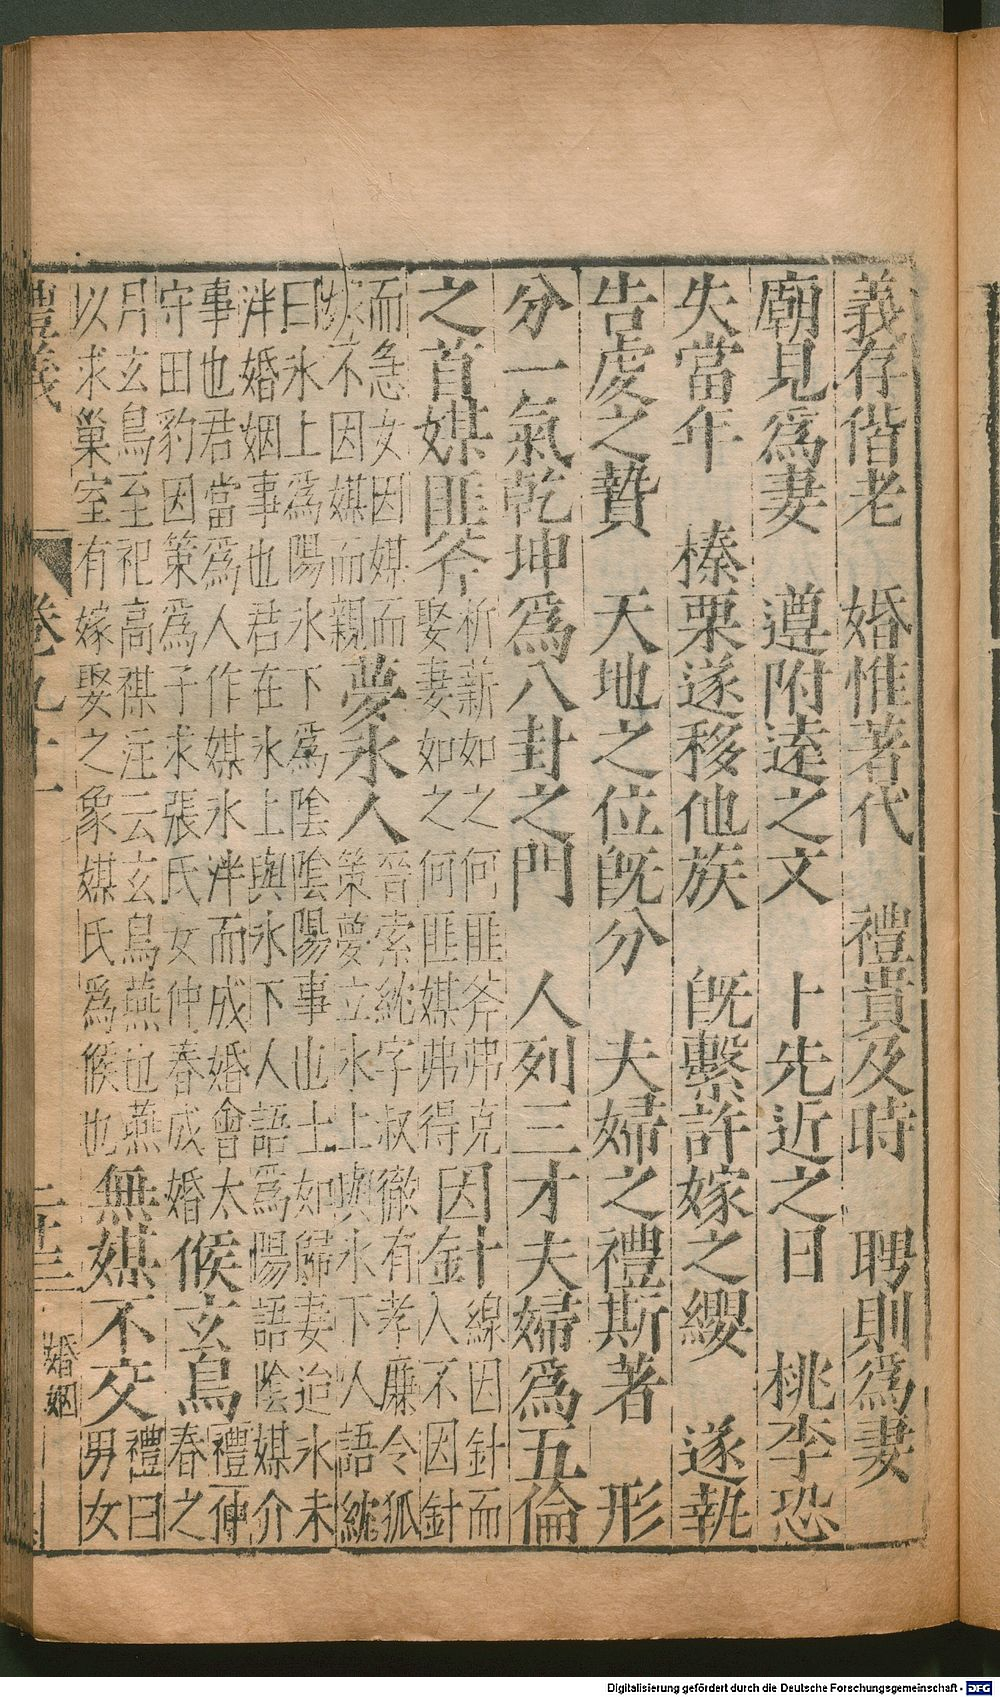 義存偕老　婚惟著代　禮貴及時　聘則爲妻
廟見爲妻　遵附逵之文　卜先近之日　桃李恐
失當年　榛栗遂移他族　旣繫許嫁之纓　遂執
告虔之贄　天地之位旣分　夫婦之禮斯著　形
分一氣乾坤爲八封之門　人列三才夫婦爲五倫
之首媒匪斧析薪如之何匪斧弗克娶妻如之何匪媒弗得因針線因針而入不因針
而急女因媒而嫁不因媒而親夢氷人晉索紞字叔徹有孝廉令狐策夢立氷上與氷下人語紞
曰氷上爲陽氷下爲陰陰陽事也士如歸妻迨氷未泮婚姻事也君在氷上與氷下人語爲陽語陰媒介
事也君當爲人作媒氷泮而成婚會太守田豹因策爲子求張氏女仲春成婚候玄鳥禮仲春之
月玄鳥至祀高禖注云玄鳥燕也燕以求巢室有嫁娶之象媒氏爲候也無媒不交禮曰男女
禮義　卷九十一　二十三　婚姻
Digitalisierung gefördert durch die Deutsche Forschungsgemeinschaft - DFG